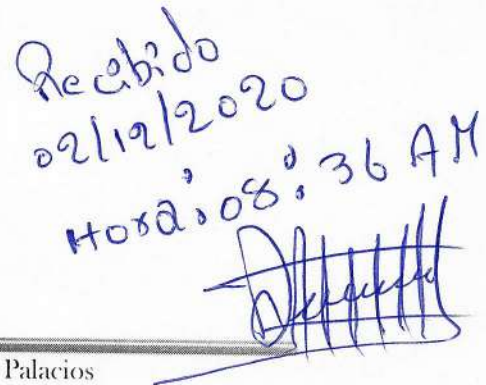 Recibido
02/12/2020
Hora: 08:36 AM
Palacios